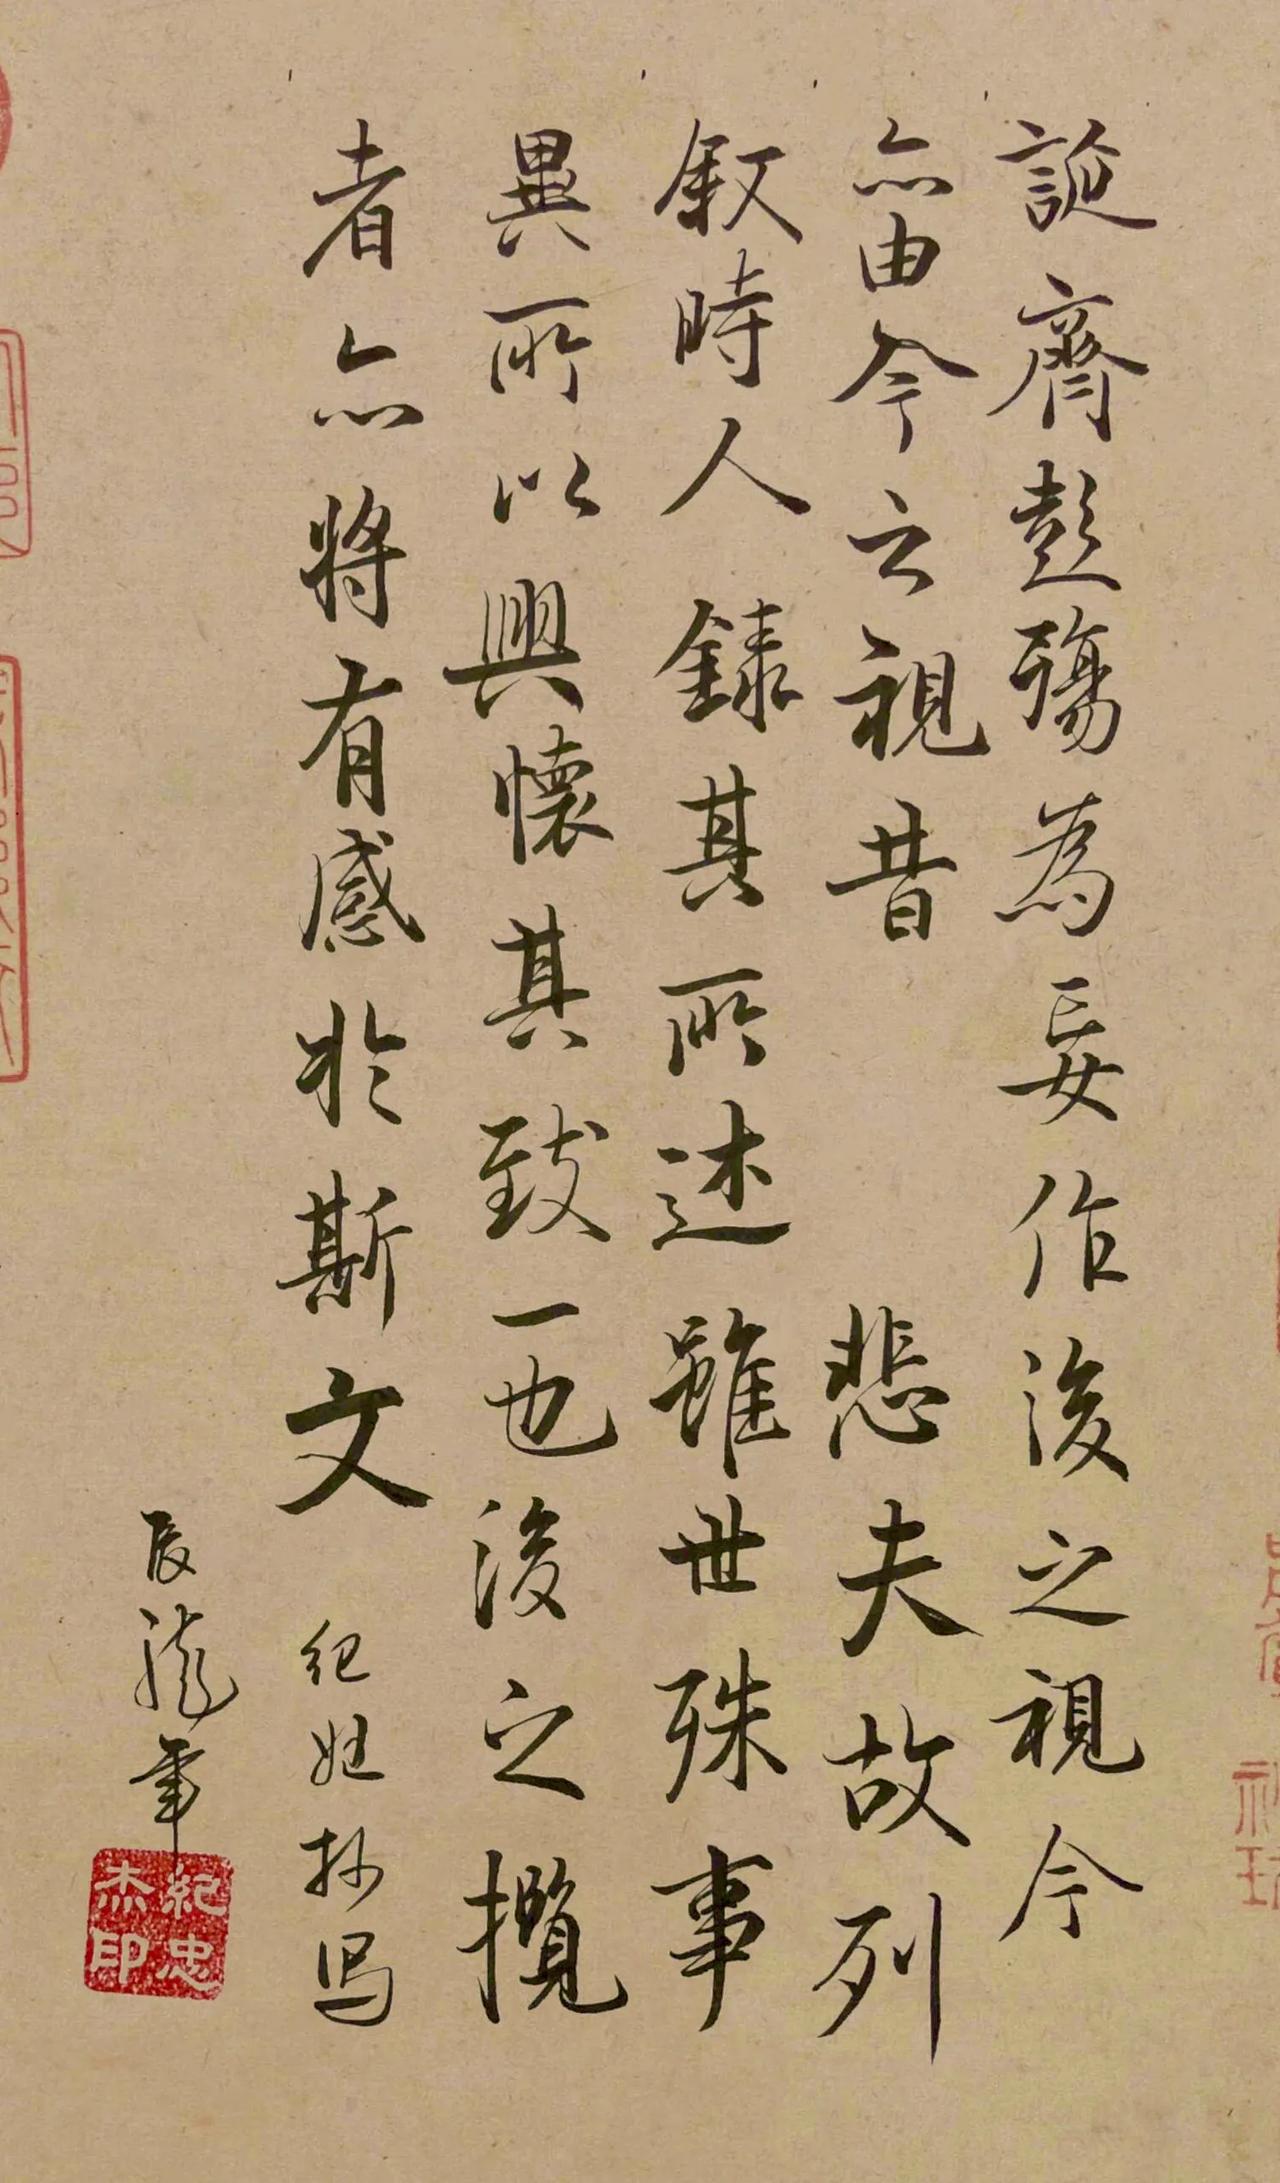 誕齊彭殤為妄作後之視今
亦由今之視昔 悲夫故列
叙時人錄其所述雖世殊事
異所以興懷其致一也後之攬
者亦將有感於斯文
抄写
辰龍年
紀忠杰印